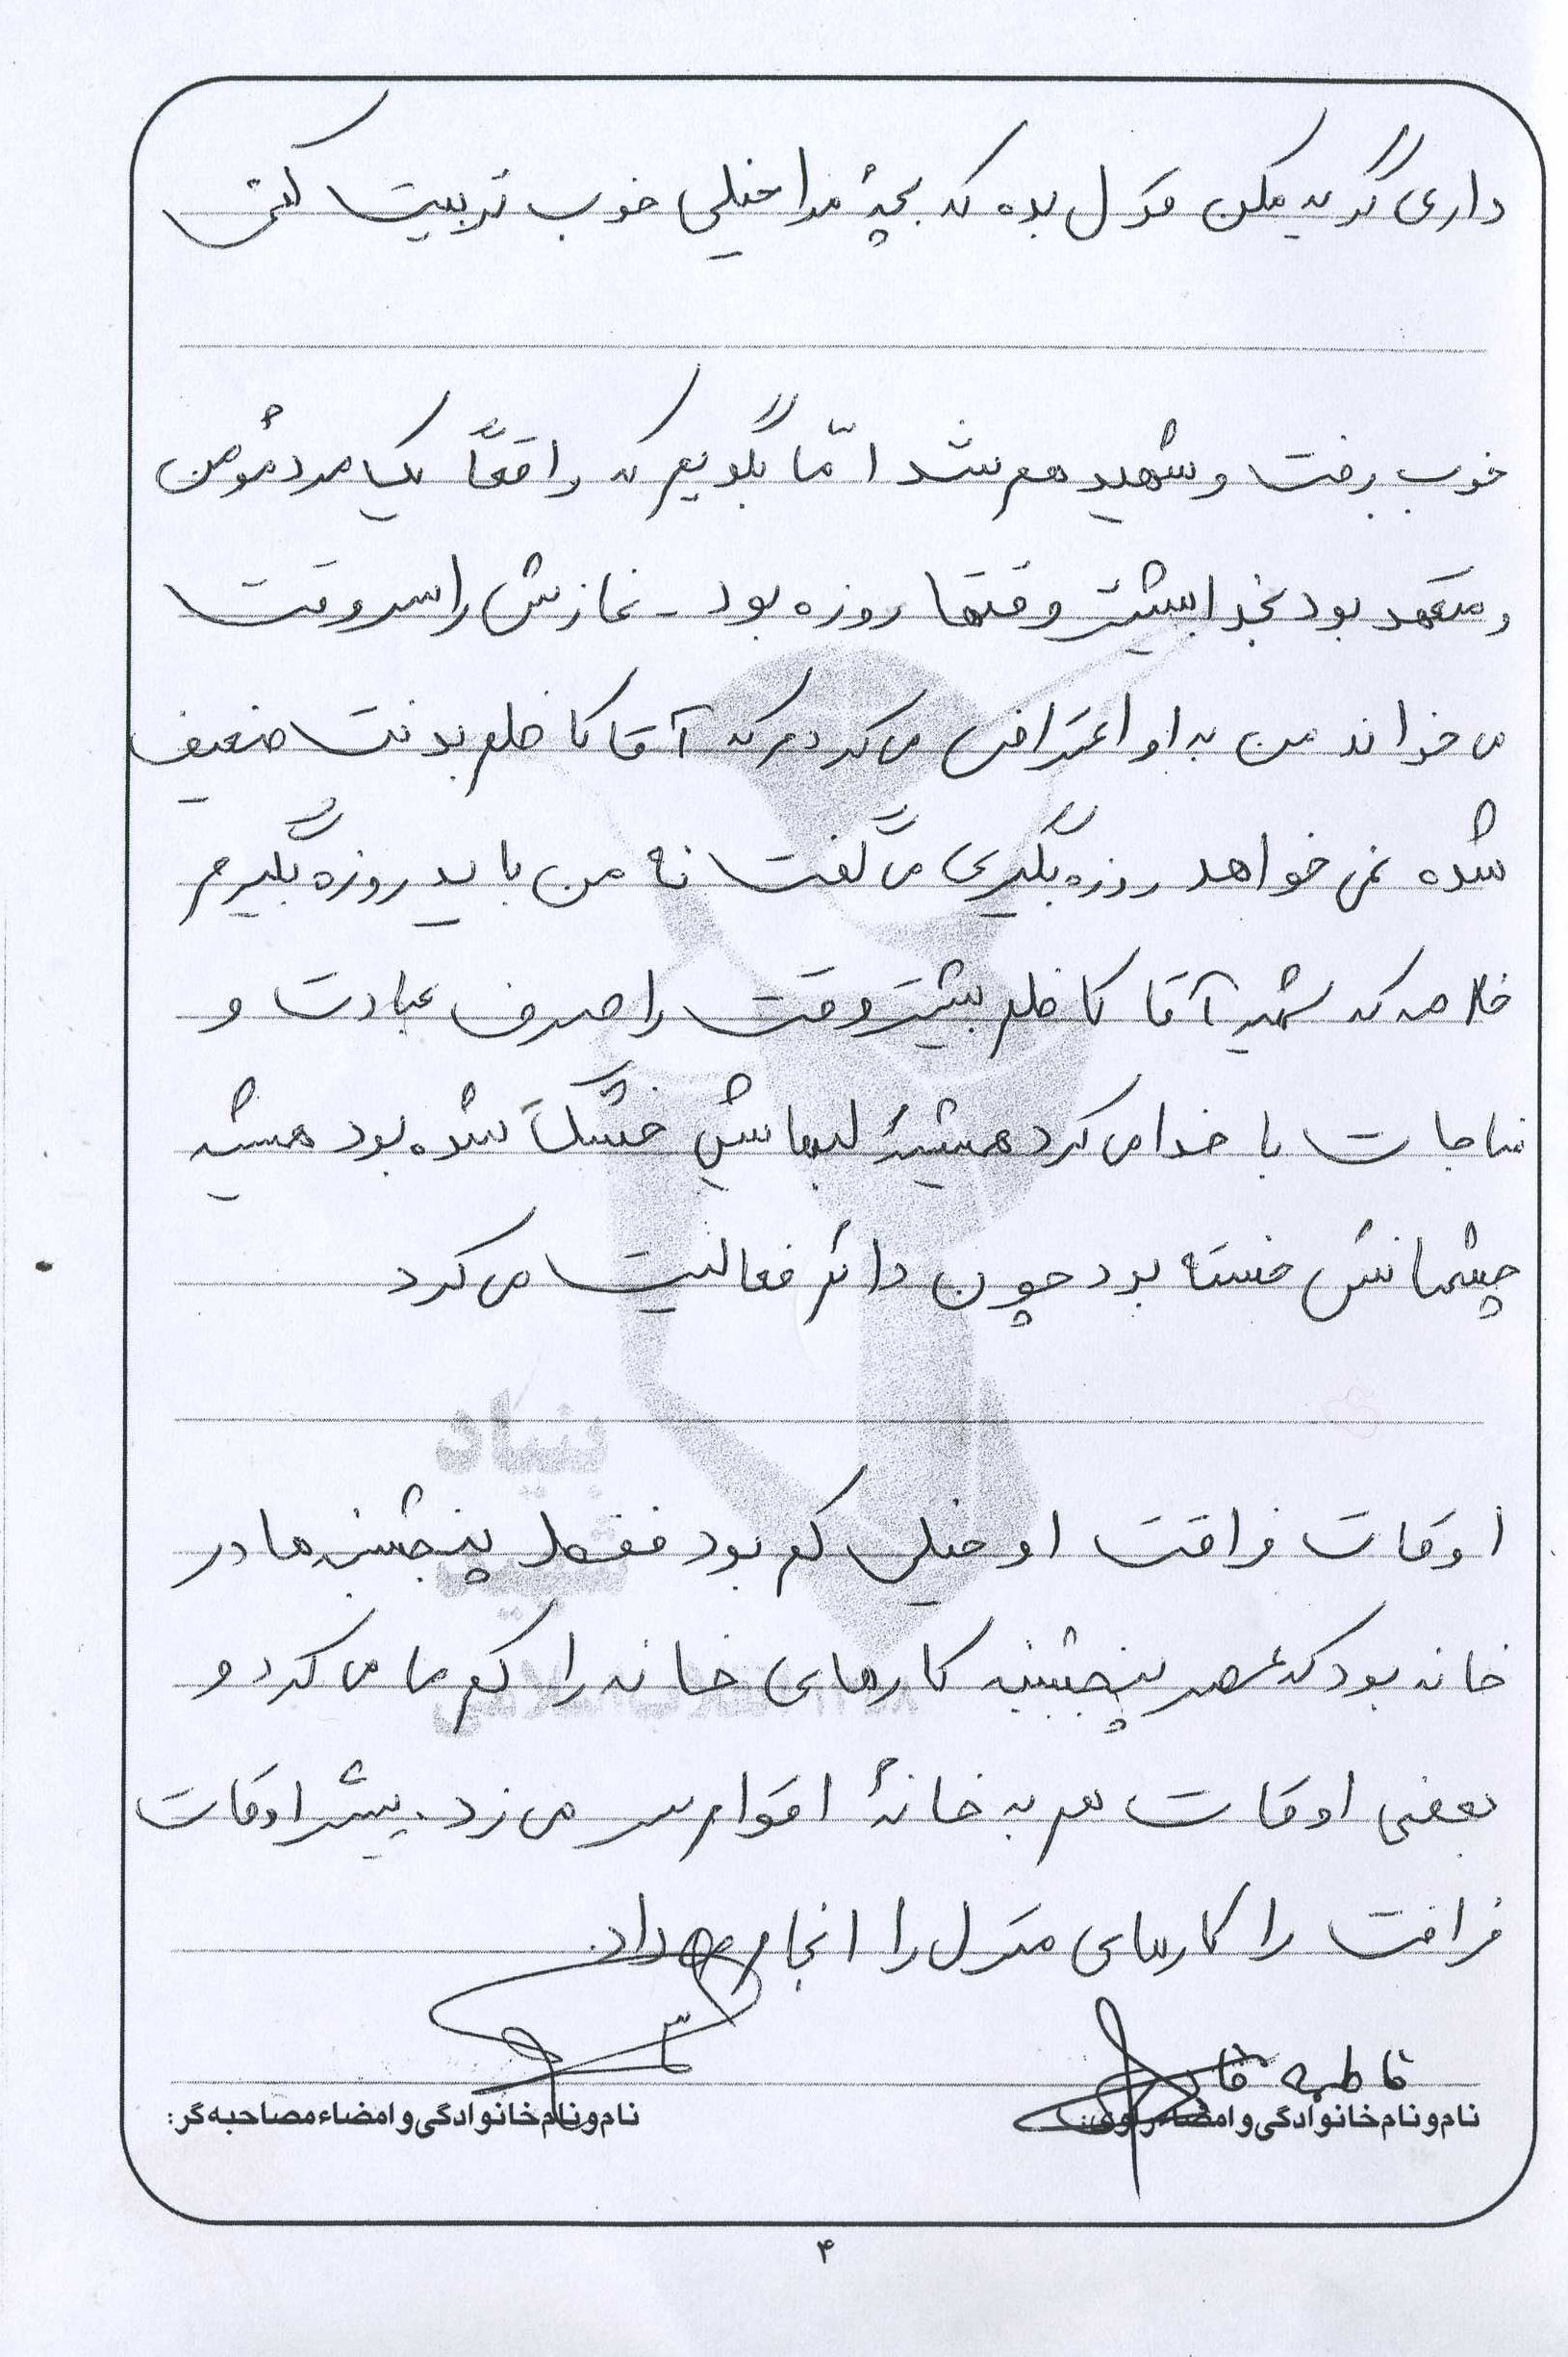 داری گریه مکن قول بده که بچهٔ مرا خیلی خوب تربیت کنی
خوب رفت و شهید هم شد امّا بگویم که واقعاً یک مرد مؤمن
و متعهد بود بخدا بیشتر وقتها روزه بود - نمازش را سر وقت
می خواند من به او اعتراض می کردم که آقا کاظم بدنت ضعیف
شده نمی خواهد روزه بگیری می گفت نه من باید روزه بگیرم
خلاصه که شهید آقا کاظم بیشتر وقت را صرف عبادت و
مناجات با خدا می کرد همیشهٔ لبهایش خشک شده بود همیشه
چشمانش خسته بود چون دائم فعالیت می کرد
اوقات فراقت او خیلی کم بود فقط پنجشنبه ها در
خانه بود که عصر پنجشنبه کارهای خانه را کم ما می کرد و
بعضی اوقات هم به خانهٔ اقوام سر می زد. بیشتر اوقات
فراقت را کارهای منزل را انجام می داد.
فاطمه
نام و نام خانوادگی و امضاء راوی:
نام و نام خانوادگی و امضاء مصاحبه گر:
۴
بنیاد
شهید